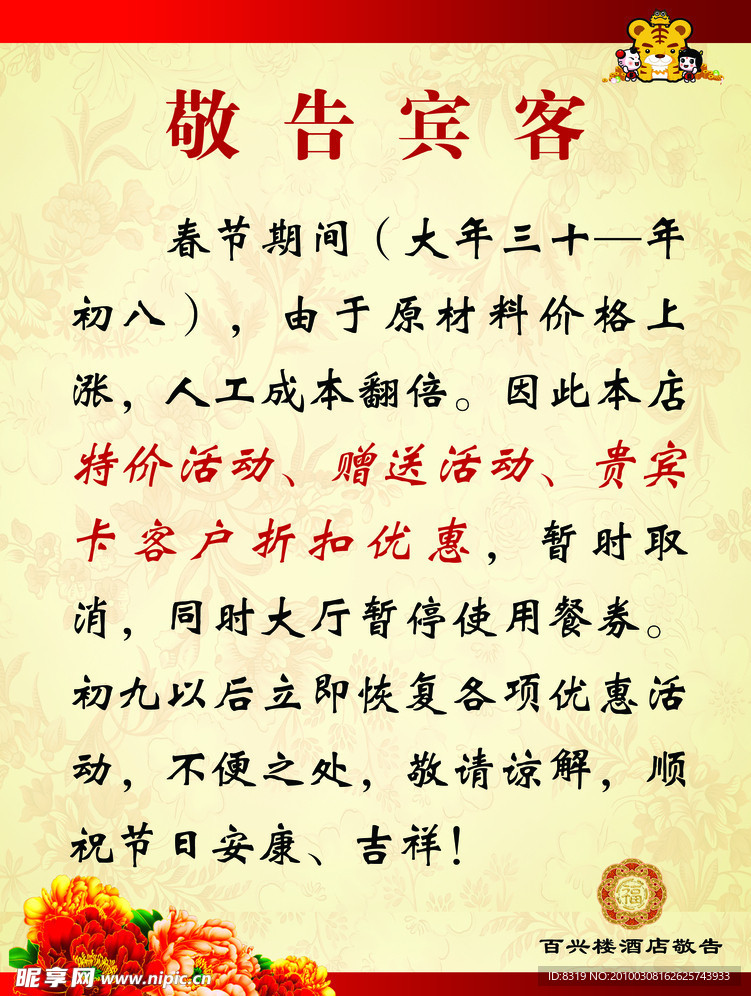 敬告宾客
春节期间（大年三十—年
初八），由于原材料价格上
涨，人工成本翻倍。因此本店
特价活动、赠送活动、贵宾
卡客户折扣优惠，暂时取
消，同时大厅暂停使用餐券。
初九以后立即恢复各项优惠活
动，不便之处，敬请谅解，顺
祝节日安康、吉祥！
福
百兴楼酒店敬告
昵享网 www.nipic.cn
ID:8319 NO:20100308162625743933